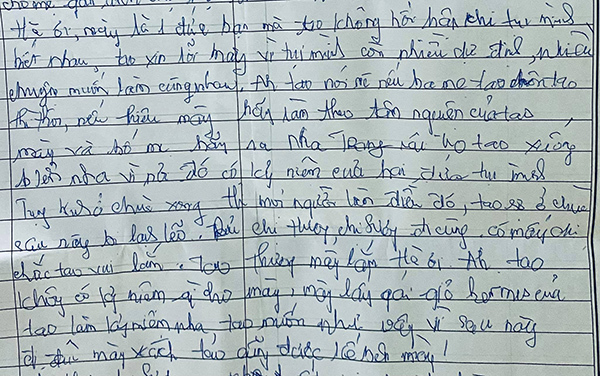 cho mẹ
Hê ơi, mày là 1 đứa bạn mà tao không hối hận khi tụi mình
biết nhau. tao xin lỗi mày vì tụi mình còn nhiều dự định, nhiều
chuyện muốn làm cùng nhau. Ah tao nói nè nếu ba mẹ tao chôn tao
thì thôi, nếu thiêu mày hãy làm theo tâm nguyện của tao,
mày và bố mẹ hãy ra nha Trang rải tro tao xuống
biển nha vì nơi đó có kỷ niệm của hai đứa tụi mình
Tụng kinh ở chùa xong thì mọi người làm điều đó, tao sẽ ở chùa
sau này ko lạnh lẽo. chị thủy, chị cũng có mấy chị
chắc tao vui lắm. Tao thương mày lắm Hê ơi Ah tao
không có kỷ niệm gì cho mày, mày lấy cái giỏ hermes của
tao làm kỷ niệm nha tao muốn như vậy vì sau này
đi đâu mày xách tao cũng được kế bên mày!